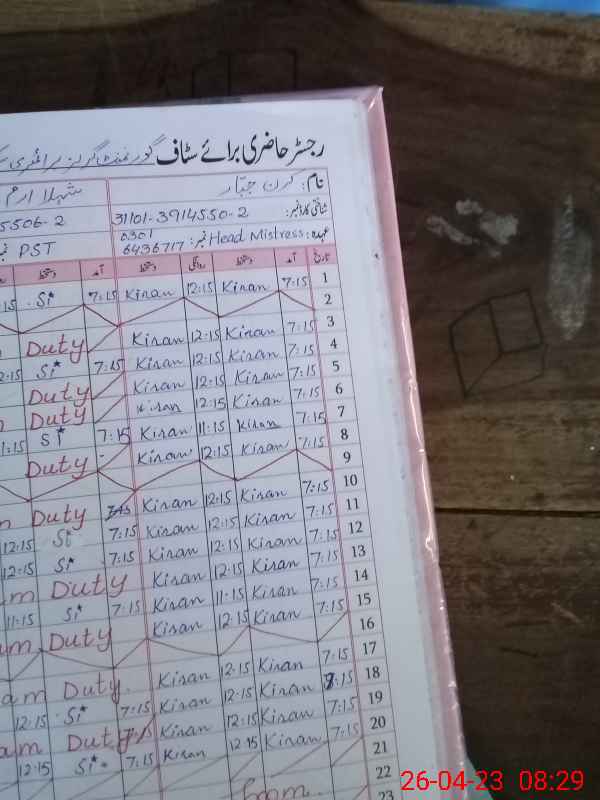 رجسٹر حاضری برائے سٹاف گورنمنٹ گرلز
نام: کرن جبار شہلا ارم
شناختی کارڈ نمبر: 31101-3914550-2 5506-2
عہدہ: Head Mistress نمبر: 0301 6436717 PST
تاریخ آمد دستخط روانگی دستخط آمد دستخط
1 7:15 Kiran 12:15 Kiran 7:15 Si
2
3 7:15 Kiran 12:15 Kiran Duty
4 7:15 Kiran 12:15 Kiran 7:15 Si 12:15
5 7:15 Kiran 12:15 Kiran Duty
6 7:15 Kiran 12:15 Kiran Duty
7 7:15 Kiran 11:15 Kiran 7:15 Si 11:15
8 7:15 Kiran 12:15 Kiran Duty
9
10 7:15 Kiran 12:15 Kiran Duty
11 7:15 Kiran 12:15 Kiran 7:15 Si 12:15
12 7:15 Kiran 12:15 Kiran 7:15 Si 12:15
13 7:15 Kiran 12:15 Kiran Duty am
14 7:15 Kiran 11:15 Kiran 7:15 Si 11:15
15 7:15 Kiran 12:15 Kiran Duty am
16
17 7:15 Kiran 12:15 Kiran Duty am
18 7:15 Kiran 12:15 Kiran 7:15 Si 12:15
19 7:15 Kiran 12:15 Kiran Duty am
20 7:15 Kiran 12:15 Kiran 7:15 Si 12:15
21
22
23
26-04-23 08:29